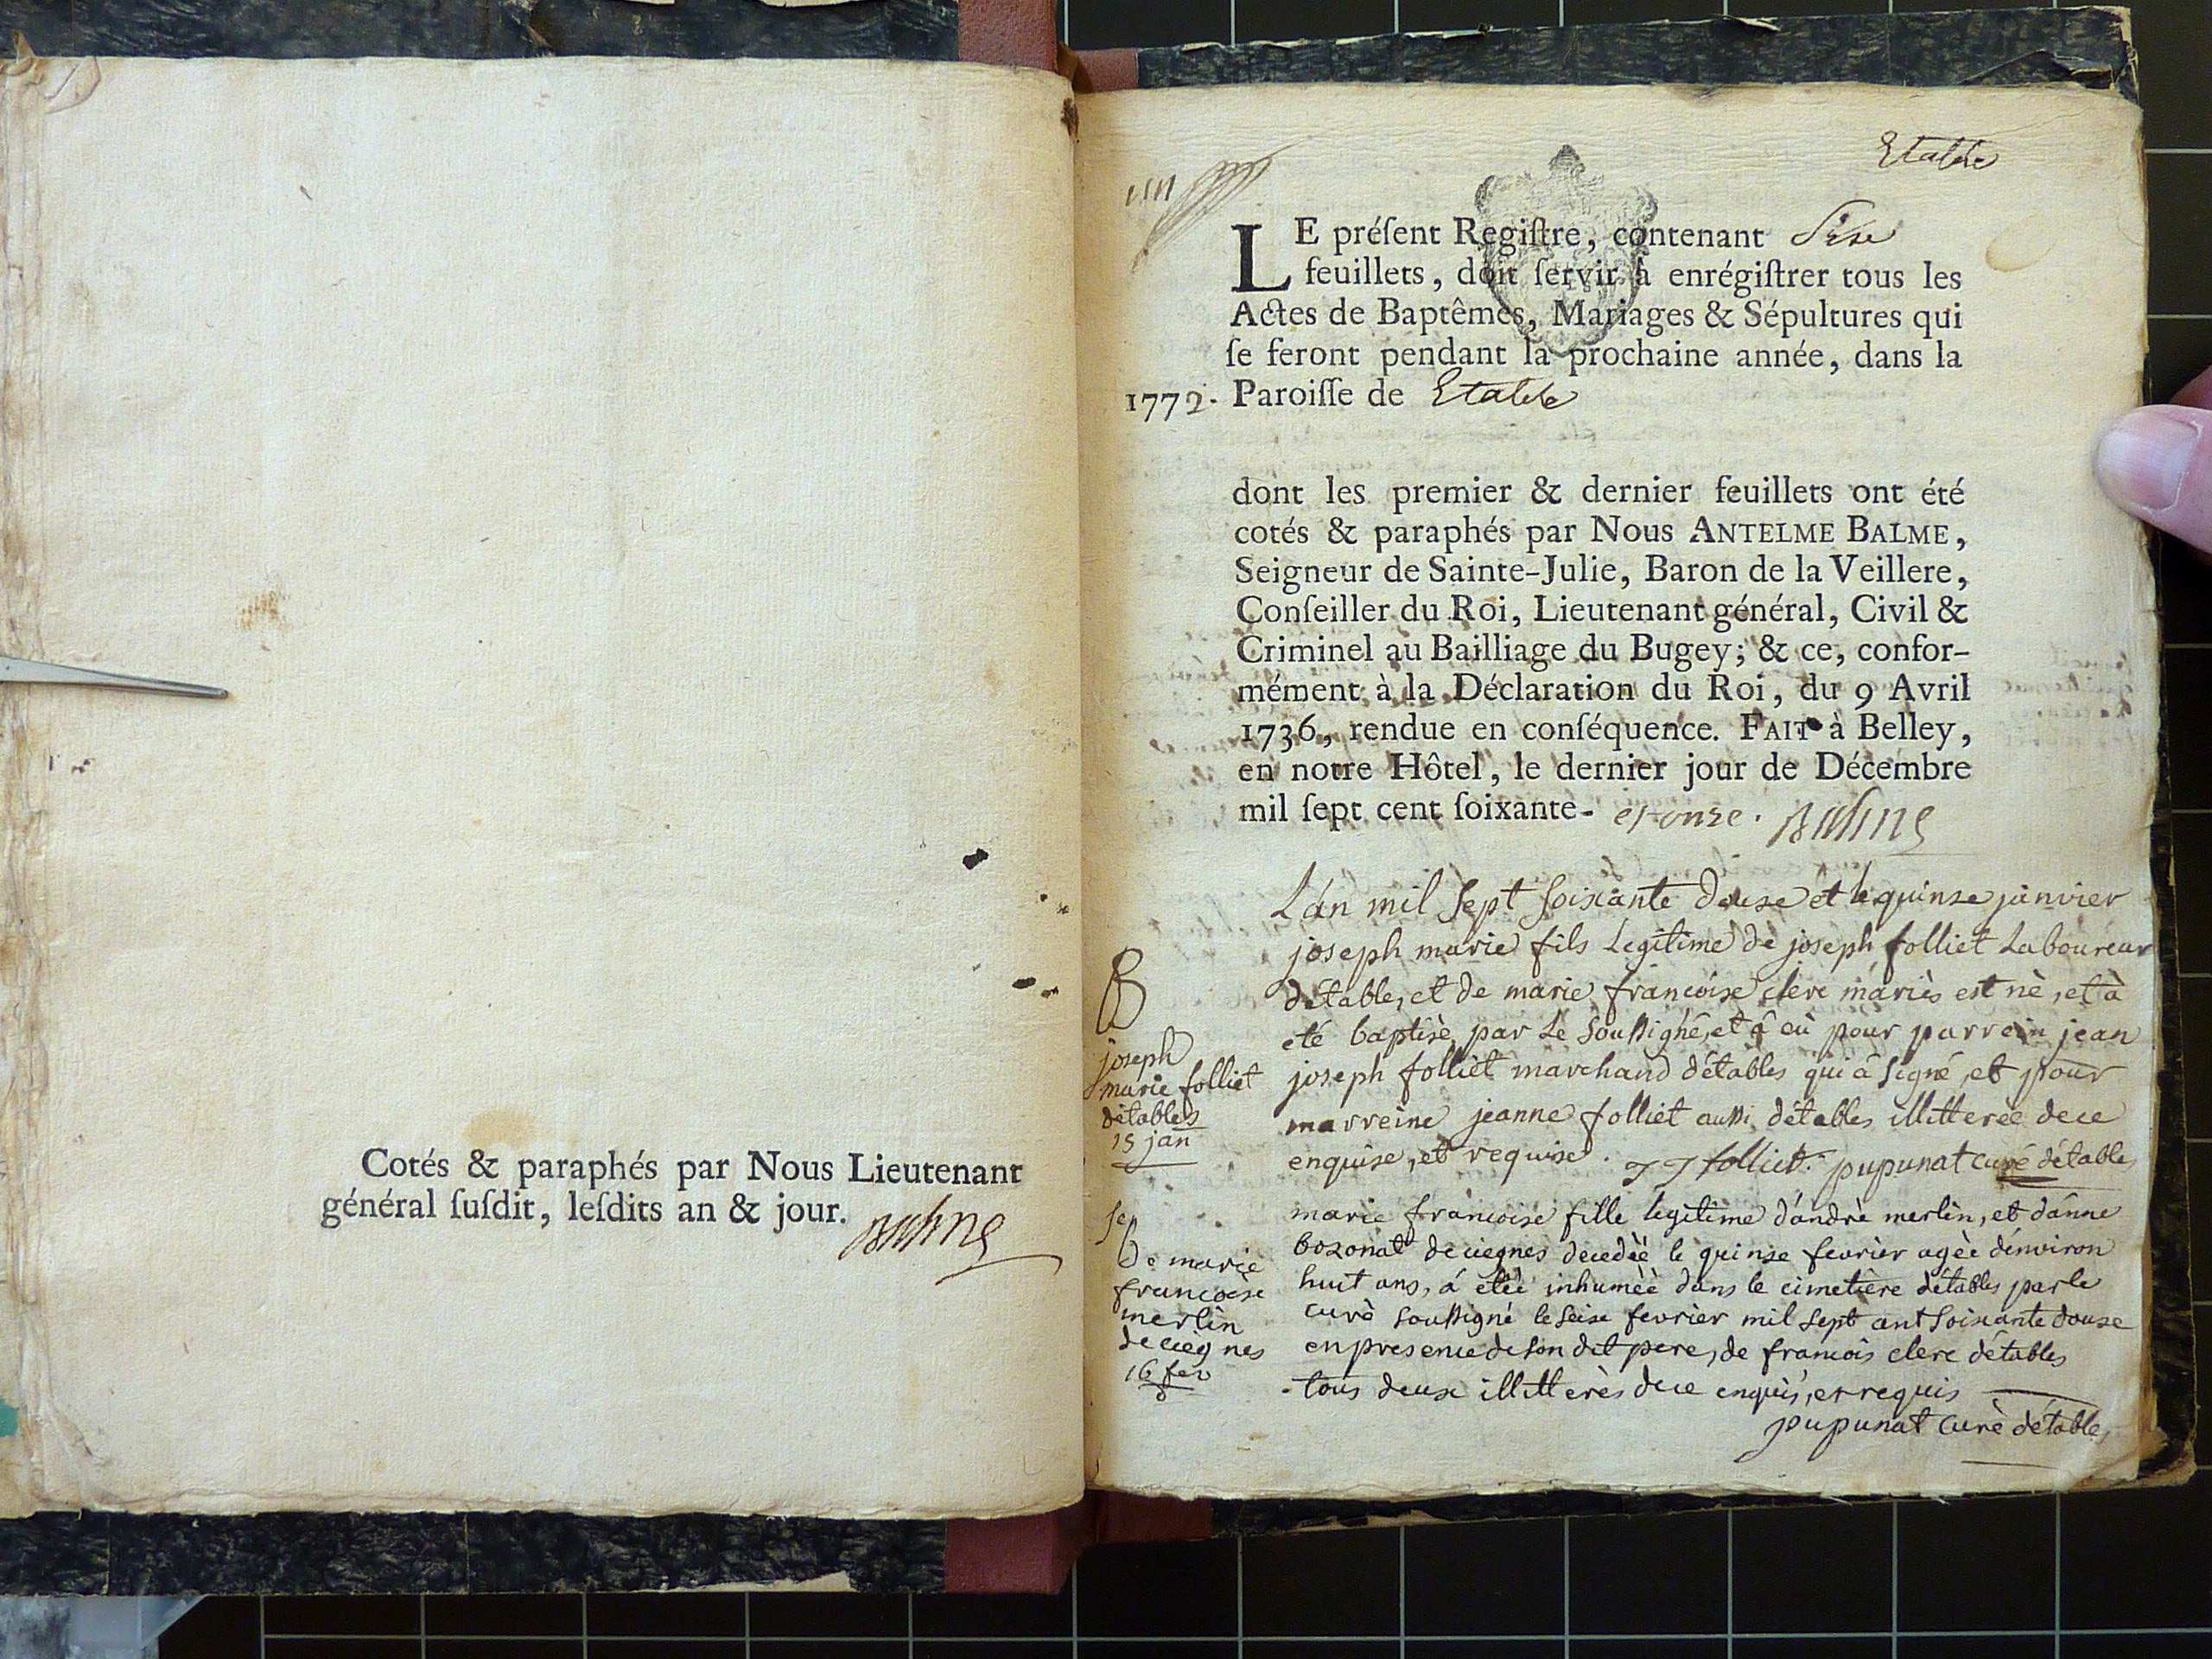 Cotés & paraphés par Nous Lieutenant
général ſuſdit, leſdits an & jour.
Balme
Etable
un
LE préſent Regiſtre, contenant Size
feuillets, doit ſervir à enrégiſtrer tous les
Actes de Baptêmes, Mariages & Sépultures qui
ſe feront pendant la prochaine année, dans la
1772. Paroiſſe de Etable
dont les premier & dernier feuillets ont été
cotés & paraphés par Nous ANTELME BALME,
Seigneur de Sainte-Julie, Baron de la Veillere,
Conſeiller du Roi, Lieutenant général, Civil &
Criminel au Bailliage du Bugey; & ce, confor-
mément à la Déclaration du Roi, du 9 Avril
1736, rendue en conſéquence. FAIT à Belley,
en notre Hôtel, le dernier jour de Décembre
mil ſept cent ſoixante- et onze. Balme
B
joseph
marie folliet
détables
15 jan
L'án mil sept soixante douse et le quinse janvier
joseph marie fils Legitime de joseph folliet Laboureur
détable, et de marie francoise clerc mariès est nè, et à
eté baptisè par Le soussignè, et â eù pour parrein jean
joseph folliet marchand d'étables qui â signé, et pour
marreine jeanne folliet aussi détables illitterée dece
enquise, et requise. JJ folliet. pupunat curé détables
Se
De marie
francoise
merlin
de ciegnes
16 fev
marie francoise fille legitime d'andrè merlin, et dânne
bozonat de ciegnes decedèè le quinse fevrier agèe dénviron
huit ans, á etèè inhumèè dans le cimetière détables par le
curè soussigné le seise fevrier mil sept cent soixante douse
en presence de son dit pere, de francois clerc détables
tous deux illitterès de ce enquis, et requis
pupunat curè détables